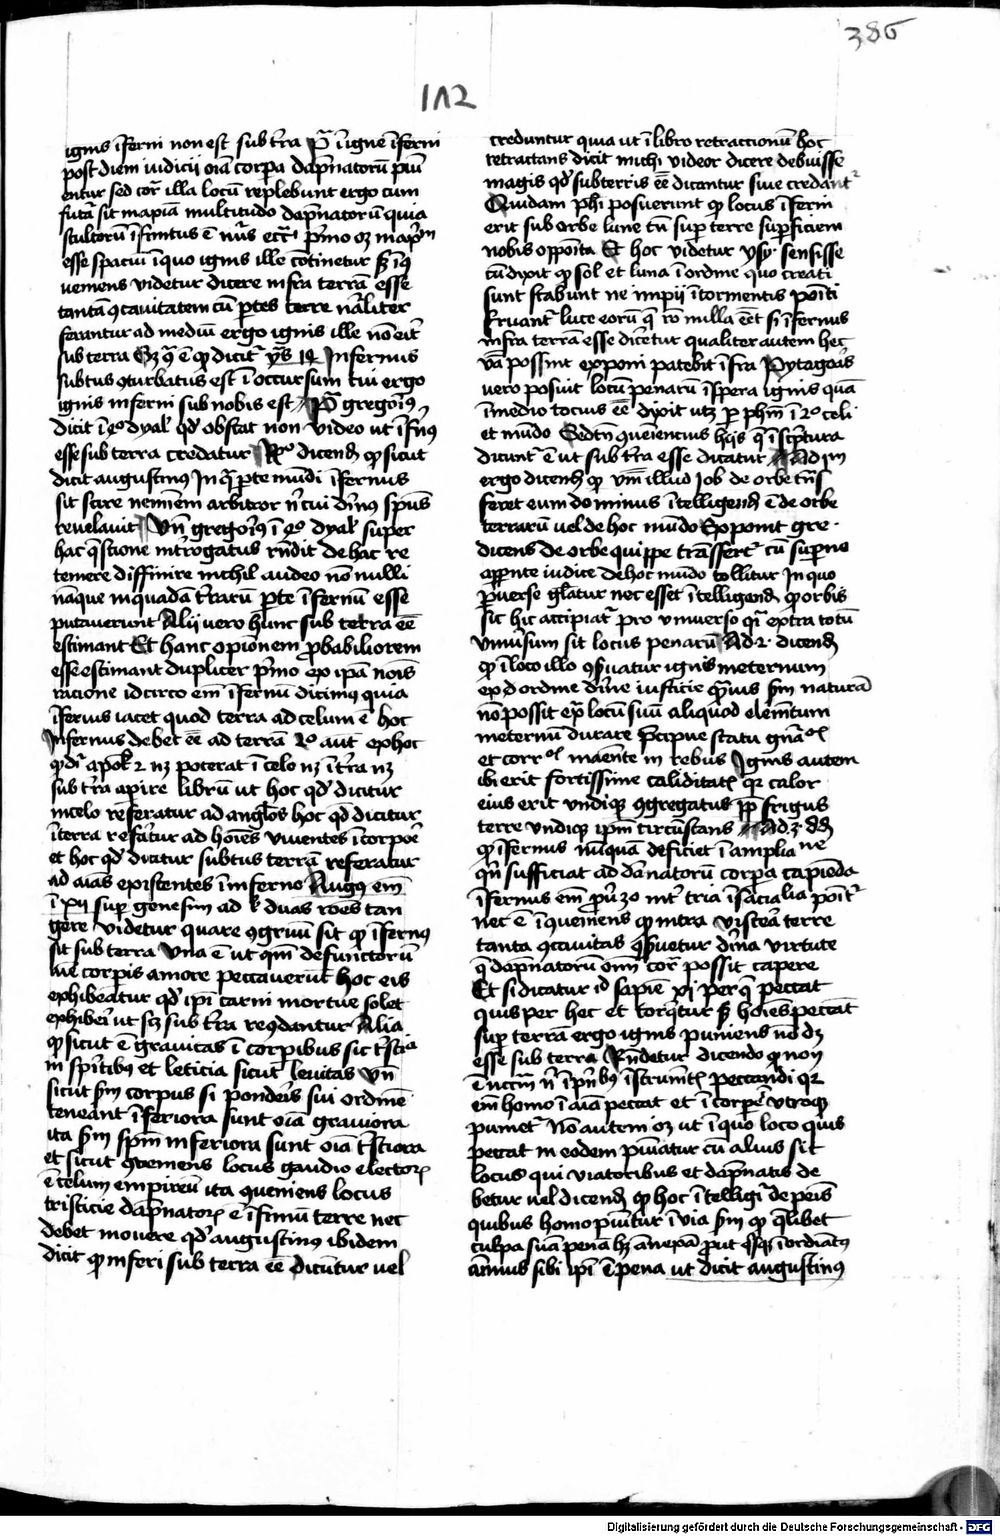 386
112
ignis īferni non est sub t̄ra p̄ ī igne īferni
post diem iudicii oīa corpa dāpnatorū puni
entur sed cor̄ illa locū replebunt ergo cum
futā sit maxīa multitudo dapnatorū quia
stultorū īfinitus ē nūs ecc̄i pʳmo oꝫ maxīm
esse spaciū ī quo ignis ille cōtinetur sꝫ ī
uemens videtur dicere infra terrā esse
tantā ꝯcauitatem cū ptes terre nāliter
ferantur ad mediū ergo ignis ille nō eit
sub terra Sꝫ ꝯ̄ ē qꝫ dicit ys 14 Infernus
subtus ꝯturbatus est ī occursum tui ergo
ignis inferni sub nobis est P̄ gregoiꝰ
dicit ī 4º dyal qd obstat non video ut īfnꝰ
esse sub terra credatur Rº dicend ꝙ sicut
dicit augustinus In q̄ pte mūdi īfernus
sit scire neminem arbitror n̄ cui diuiꝰ spūs
reuelauit Vn̄ gregoiꝰ ī 4º dyal super
hac q̄stione int̄rogatus rn̄dit de hac re
temere diffinire nichil audeo nō nulli
nāque in quadā t̄rarū pte īfernū esse
putauerunt Alii vero hunc sub terra eē
estimant Et hanc opionem pbabiliorem
esse estimant dupliciter pʳmo ex ipā nois
racione idcirco em̄ īfernū dicimus quia
īferius iacet quod terra ad celum ē hoc
Infernus debet eē ad terrā 2º aut̄ ex hoc
qd dī apoc̄ 2 nꝫ poterat ī celo nꝫ ī t̄ra nꝫ
sub t̄ra apire librū ut hoc qd dicitur
in celo referatur ad anglos hoc qd dicitur
ī terra refatur ad hoīes viuentes ī corpoē
et hoc qd dicatur subtus terrā referatur
ad aīas existentes ī inferno Augꝰ em̄
ī xii sup genesim ad l̄ duas rōes tan
gere videtur quare ꝯgruū sit ꝙ īfernꝰ
sit sub terra Vna ē ut qm̄ defunctorū
aīe corpis amore peccauerūt hoc eis
exhibeatur qd ipī carni mortue solet
exhiberi ut sꝫ sub t̄ra recōdantur Alia
ꝙ sicut ē grauitas ī corpibus sic tʳsticia
in spīritibꝰ et leticia sicut leuitas Vn̄
sicut sm̄ corpus si ponderis sui ordinē
teneant īferiora sunt oīa grauiora
ita sm̄ spm̄ inferiora sunt oīa tʳstiora
et sicut ꝯueniens locus gaudio electoꝝ
ē celum empireū ita ꝯueniens locus
tristicie dāpnatoꝝ ē īfimū terre nec
debet mouere qd augustinus ibidem
dicit ꝙ inferi sub terra eē dicūtur uel
creduntur quia ut ī libro retractionū hoc
retractans dicit michi videor dicere debuisse
magis qd sub terris eē dicantur siue credant
Quidam phī posuerunt ꝙ locus īferni
erit sub orbe lune tn̄ sup terre supficiem
nobis opposita Et hoc videtur ysy sensisse
cū dixit ꝙ sol et luna ī ordine quo creati
sunt stabunt ne impii ī tormentis positi
fruant̄ luce eorū q̄ rō nulla eēt si īfernus
infra terrā esse dicetur qualiter autem hec
vā possint exponi patebit īfra Pytagoās
uero posuit locū penarū ī spera ignis quā
ī medio tocius eē dixit utꝫ p phm̄ ī 2º celi
et mūdo Sed tn̄ ꝯueiencius hijs q̄ ī scptura
dicunt̄ ē ut sub t̄ra esse dicatur Ad 1m
ergo dicend ꝙ vm̄ illud Job de orbe tn̄s
feret eum dominus ītelligend ē de orbe
terrarū uel de hoc mūdo Exponit gre
dicens de orbe quippe trāsfert̄ cū superno
appente iudice de hoc mūdo tollitur In quo
puerse gl̄atur nec esset ītelligend ꝙ orbis
sic hic accipiat̄ pro vniuerso q̄i extra totū
vniūsum sit locus penarū Ad 2 dicend
ꝙ ī loco illo ꝯseruatur ignis ineternum
ex d ordine diuīe iusticie quis sm̄ naturā
nō possit ex̄ locū suū aliquod elemētum
ineternū durare pcipue statu
et corr maēnte in rebus Ignis autem
ibi erit fortissime caliditat qꝛ calor
eius erit vndiqꝫ ꝯgregatus pp frigus
terre vndiqꝫ ipm̄ circūstans Ad 3 dd
ꝙ īfernus nūquā deficiet ī amplia ne
qn̄ sufficiat ad dānatorū corpa capiēda
īfernus em̄ puer 30 int̄ tria īsaciabilia poīt
nec ē ī ꝯueniens ꝙ intra viscera terre
tanta ꝯcauitas ꝯseruetur diuīa virtute
q̄ dāpnatorū oīm cor̄ possit capere
Et si dicatur id sapiē xi per q̄ peccat
quis per hec et torq̄tur sꝫ hoīes peccāt
sup terrā ergo ignis puniens nō dꝫ
esse sub terra Rn̄detur dicendo ꝙ non
ē necm̄ n̄ ī pn̄bꝰ īstrumēt peccandi qꝛ
em̄ homo ī aīa peccat et ī corpē vtroqꝫ
puniet̄ Nō autem oꝫ ut ī quo loco quis
peccat in eodem puniatur cū alius sit
locus qui viatoribus et dāpnatis de
betur uel dicend ꝙ hoc ītelligī de penis
quibus homo punitur ī via sm̄ ꝙ q̄libet
culpa suā penā hꝫ ānexā put ī ordiatꝰ
animus sibi ipī ē pena ut dicit augustinus
Digitalisierung gefördert durch die Deutsche Forschungsgemeinschaft - DFG